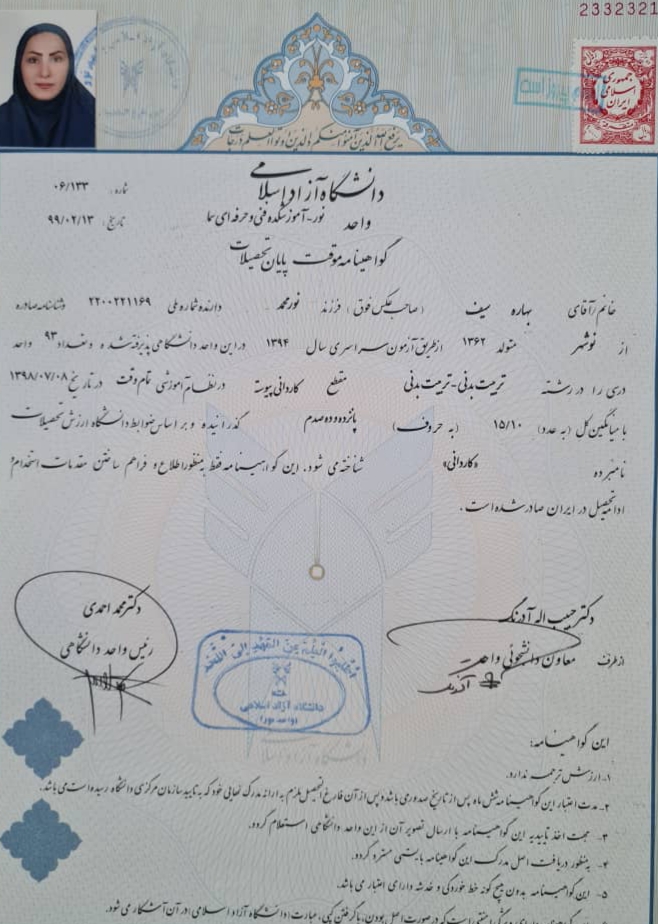 2332321
جمهوری اسلامی ایران
یرفع الله الذین آمنوا منکم والذین اوتوا العلم درجات
دانشگاه آزاد اسلامی
شماره: ۰۶/۱۳۳
واحد نور-آموزشکده فنی و حرفه ای سما
تاریخ: ۹۹/۰۲/۱۳
گواهینامه موقت پایان تحصیلات
خانم/آقای بهاره سیف (صاحب عکس فوق) فرزند نورمحمد دارنده شماره ملی ۲۲۰۰۲۲۱۱۶۹ و شناسنامه صادره
از نوشهر متولد ۱۳۶۲ از طریق آزمون سراسری سال ۱۳۹۴ در این واحد دانشگاهی پذیرفته شد و تعداد ۹۳ واحد
درسی را در رشته تربیت بدنی-تربیت بدنی مقطع کاردانی پیوسته در نظام آموزشی تمام وقت در تاریخ ۱۳۹۸/۰۷/۰۸
با میانگین کل (به عدد) ۱۵/۱۰ (به حروف) پانزده و ده صدم گذرانیده و بر اساس ضوابط دانشگاه ارزش تحصیلات
نامبرده «کاردانی» شناخته می شود. این گواهینامه فقط بمنظور اطلاع و فراهم ساختن مقدمات استخدام/
ادامه تحصیل در ایران صادر شده است.
دکتر حبیب اله آدرنگ
دکتر محمد احمدی
از طرف معاون دانشجوئی واحد
رئیس واحد دانشگاهی
اطلبوا العلم من المهد الی اللحد
دانشگاه آزاد اسلامی
(واحد نور)
این گواهینامه:
۱- ارزش ترجمه ندارد.
۲- مدت اعتبار این گواهینامه شش ماه پس از تاریخ صدور می باشد و پس از آن فارغ التحصیل ملزم به ارائه مدرک نهایی خود که به تایید سازمان مرکزی دانشگاه رسیده است می باشد.
۳- جهت اخذ تاییدیه این گواهینامه با ارسال تصویر آن از این واحد دانشگاهی استعلام گردد.
۴- بمنظور دریافت اصل مدرک این گواهینامه بایستی مسترد گردد.
۵- این گواهینامه بدون هیچ گونه خط خوردگی و خدشه دارای اعتبار می باشد.
که در صورت اصل بودن، با گرفتن کپی، عبارت دانشگاه آزاد اسلامی در آن آشکار می شود.